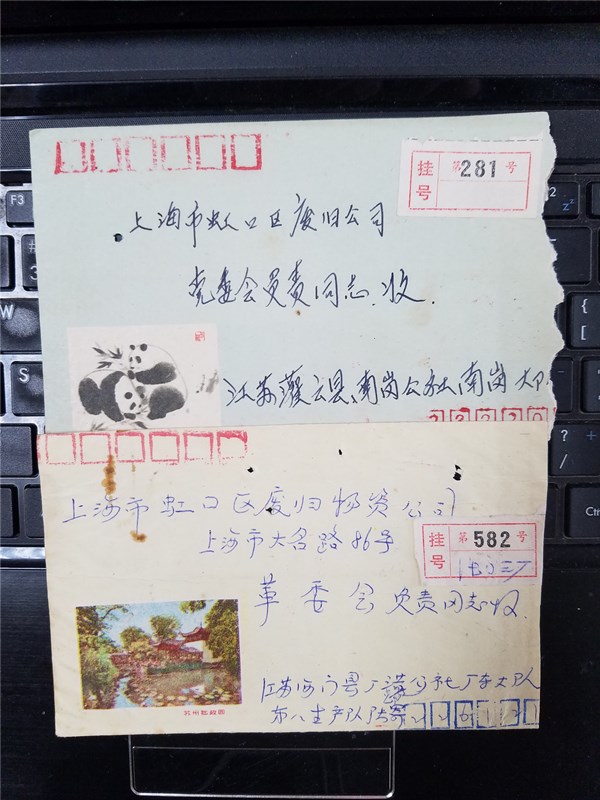 挂号 第281号
上海市虹口区废旧公司
党委会负责同志收.
江苏灌云县南岗公社南岗大队
挂号 第582号
上海市虹口区废旧物资公司
上海市大名路86号
革委会负责同志收
苏州拙政园
江苏海门县
公社
大队
生产队
F3
W
S
2
Z
{
[
?
/
+
=
Ctrl